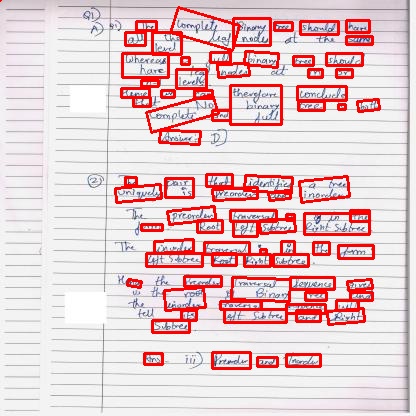 Q1)
A) Q1) The Complete Binary tree should have
all the leaf nodes at the same
level
Whereas a full binary tree should
have leaf nodes at or
level
Hence we can therefore conclude
that No binary tree is both
Complete and full
Answer D)
(2) The pair that identifies a tree
Uniquely is preorder and inorder
The preorder traversal is given in the
form Root Left Subtree Right Subtree
The inorder traversal is in the form
Left Subtree Root Right Subtree
Here the Preorder traversal sequence gives
us the root Binary tree and
the inorder traversal sequence will
tell its left Subtree and Right
Subtree
Ans. iii) Preorder and Inorder